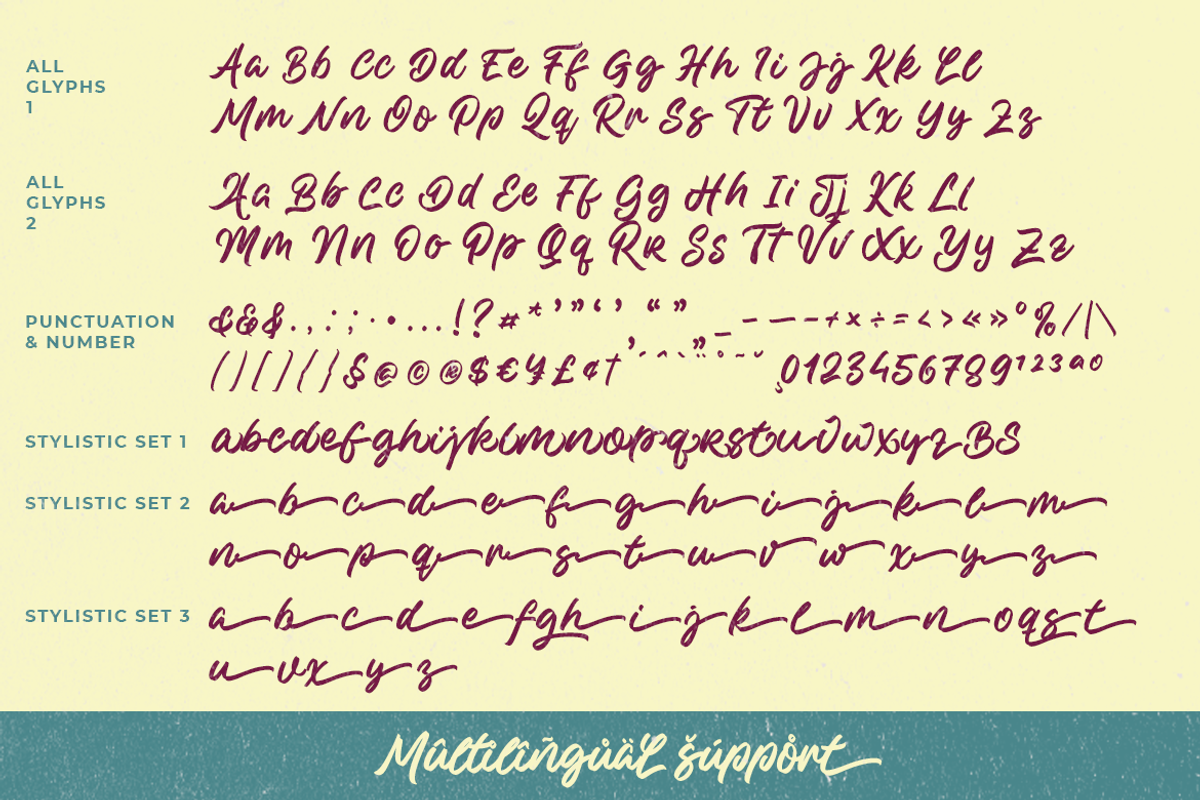 ALL GLYPHS 1
Aa Bb Cc Dd Ee Ff Gg Hh Ii Jj Kk Ll
Mm Nn Oo Pp Qq Rr Ss Tt Vv Xx Yy Zz
ALL GLYPHS 2
Aa Bb Cc Dd Ee Ff Gg Hh Ii Jj Kk Ll
Mm Nn Oo Pp Qq Rr Ss Tt Vv Xx Yy Zz
PUNCTUATION & NUMBER
&&&.,:;·•...!?#*’”‘’ “”‚„_-—–+×÷=<>«»°%/|\
()[]{}§@©®$€¥£¢†´ˆ`¨˚˜˘¸0123456789¹²³ªº
STYLISTIC SET 1
abcdefghijklmnopqrstuvwxyzBS
STYLISTIC SET 2
a b c d e f g h i j k l m
n o p q r s t u v w x y z
STYLISTIC SET 3
a b c d e f g h i j k l m n o q s t
u v x y z
Mûltilîñgůäl šúppo̊rt